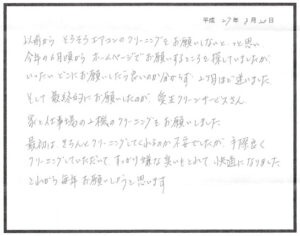 平成 27年 8月20日
以前から そろそろエアコンのクリーニングをお願いしないと、と思い
今年の6月頃から ホームページでお願いするところを探していましたが、
いったい どこにお願いしたら良いのか分からず 2ヶ月ほど迷いました
そして最終的にお願いしたのが、愛王クリーンサービスさん
家と仕事場の2機のクリーニングをお願いしました
最初は、きちんとクリーニングしてくれるのか不安でしたが、手際良く
クリーニングしていただいて すっかり嫌な臭いもとれて 快適になりました
これから毎年お願いしようと思います